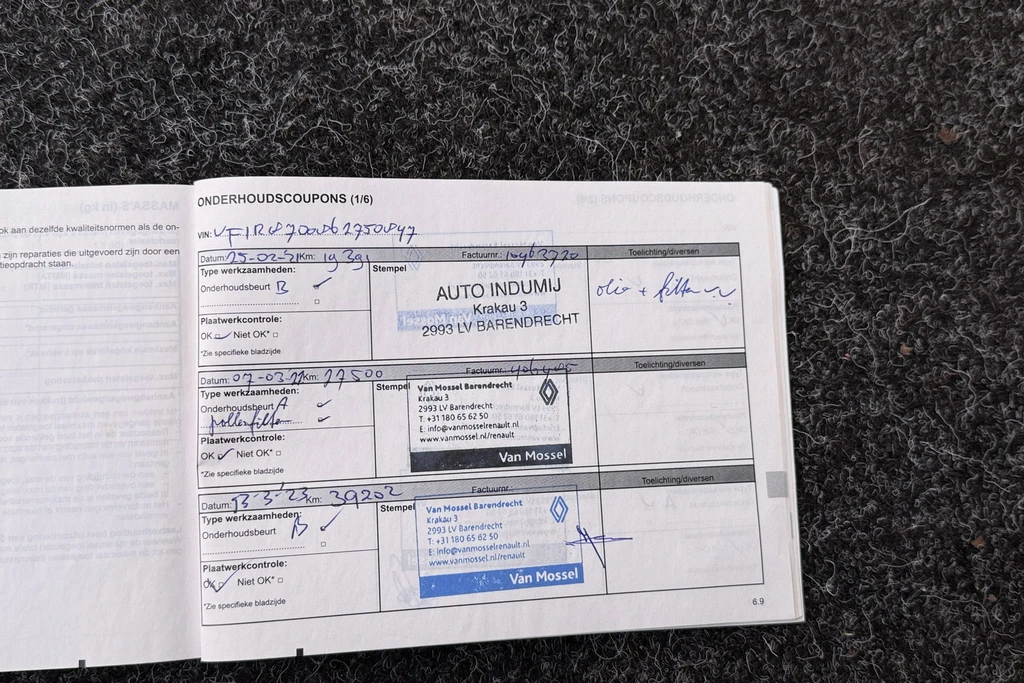 ok aan dezelfde kwaliteitsnormen als de on-
zijn reparaties die uitgevoerd zijn door een
tieopdracht staan.
ONDERHOUDSCOUPONS (1/6)
VIN:
Datum: 25-02-21 Km: Factuurnr.: Toelichting/diversen
Type werkzaamheden: Stempel
Onderhoudsbeurt B olie + filter
AUTO INDUMIJ
Krakau 3
2993 LV BARENDRECHT
Plaatwerkcontrole:
OK Niet OK*
*Zie specifieke bladzijde
Datum: 07-03-22 Km: 27500 Factuurnr.: Toelichting/diversen
Type werkzaamheden: Stempel
Onderhoudsbeurt A
pollenfilter
Van Mossel Barendrecht
Krakau 3
2993 LV Barendrecht
T: +31 180 65 62 50
E: info@vanmosselrenault.nl
www.vanmossel.nl/renault
Van Mossel
Plaatwerkcontrole:
OK Niet OK*
*Zie specifieke bladzijde
Datum: 13-3-23 Km: 39202 Factuurnr.: Toelichting/diversen
Type werkzaamheden: Stempel
Onderhoudsbeurt B
Van Mossel Barendrecht
Krakau 3
2993 LV Barendrecht
T: +31 180 65 62 50
E: info@vanmosselrenault.nl
www.vanmossel.nl/renault
Van Mossel
Plaatwerkcontrole:
OK Niet OK*
*Zie specifieke bladzijde
6.9